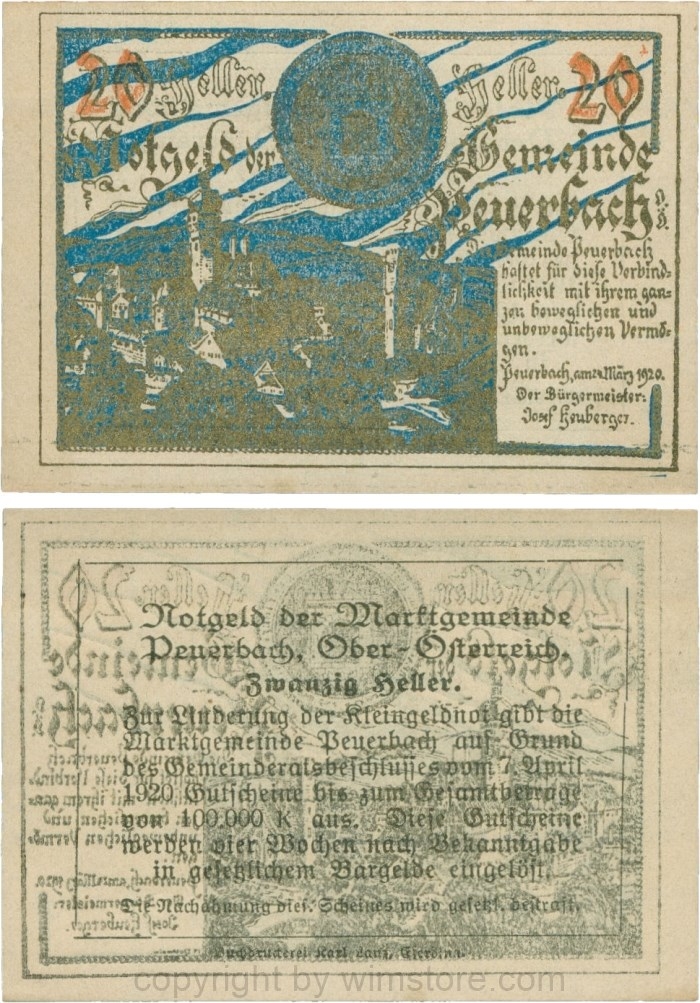 20 Heller. Heller. 20
Notgeld der Gemeinde
Peuerbach O.Ö.
Gemeinde Peuerbach
haftet für diese Verbind-
lichkeit mit ihrem gan-
zen beweglichen und
unbeweglichen Vermö-
gen.
Peuerbach, am März 1920.
Der Bürgermeister:
Josef Heuberger.
Notgeld der Marktgemeinde
Peuerbach, Ober-Österreich.
Zwanzig Heller.
Zur Linderung der Kleingeldnot gibt die
Marktgemeinde Peuerbach auf Grund
des Gemeinderatsbeschlusses vom 7. April
1920 Gutscheine bis zum Gesamtbetrage
von 100.000 K aus. Diese Gutscheine
werden vier Wochen nach Bekanntgabe
in gesetzlichem Bargelde eingelöst.
Die Nachahmung dies. Scheines wird gesetzl. bestraft.
Buchdruckerei Karl
copyright by wimstore.com